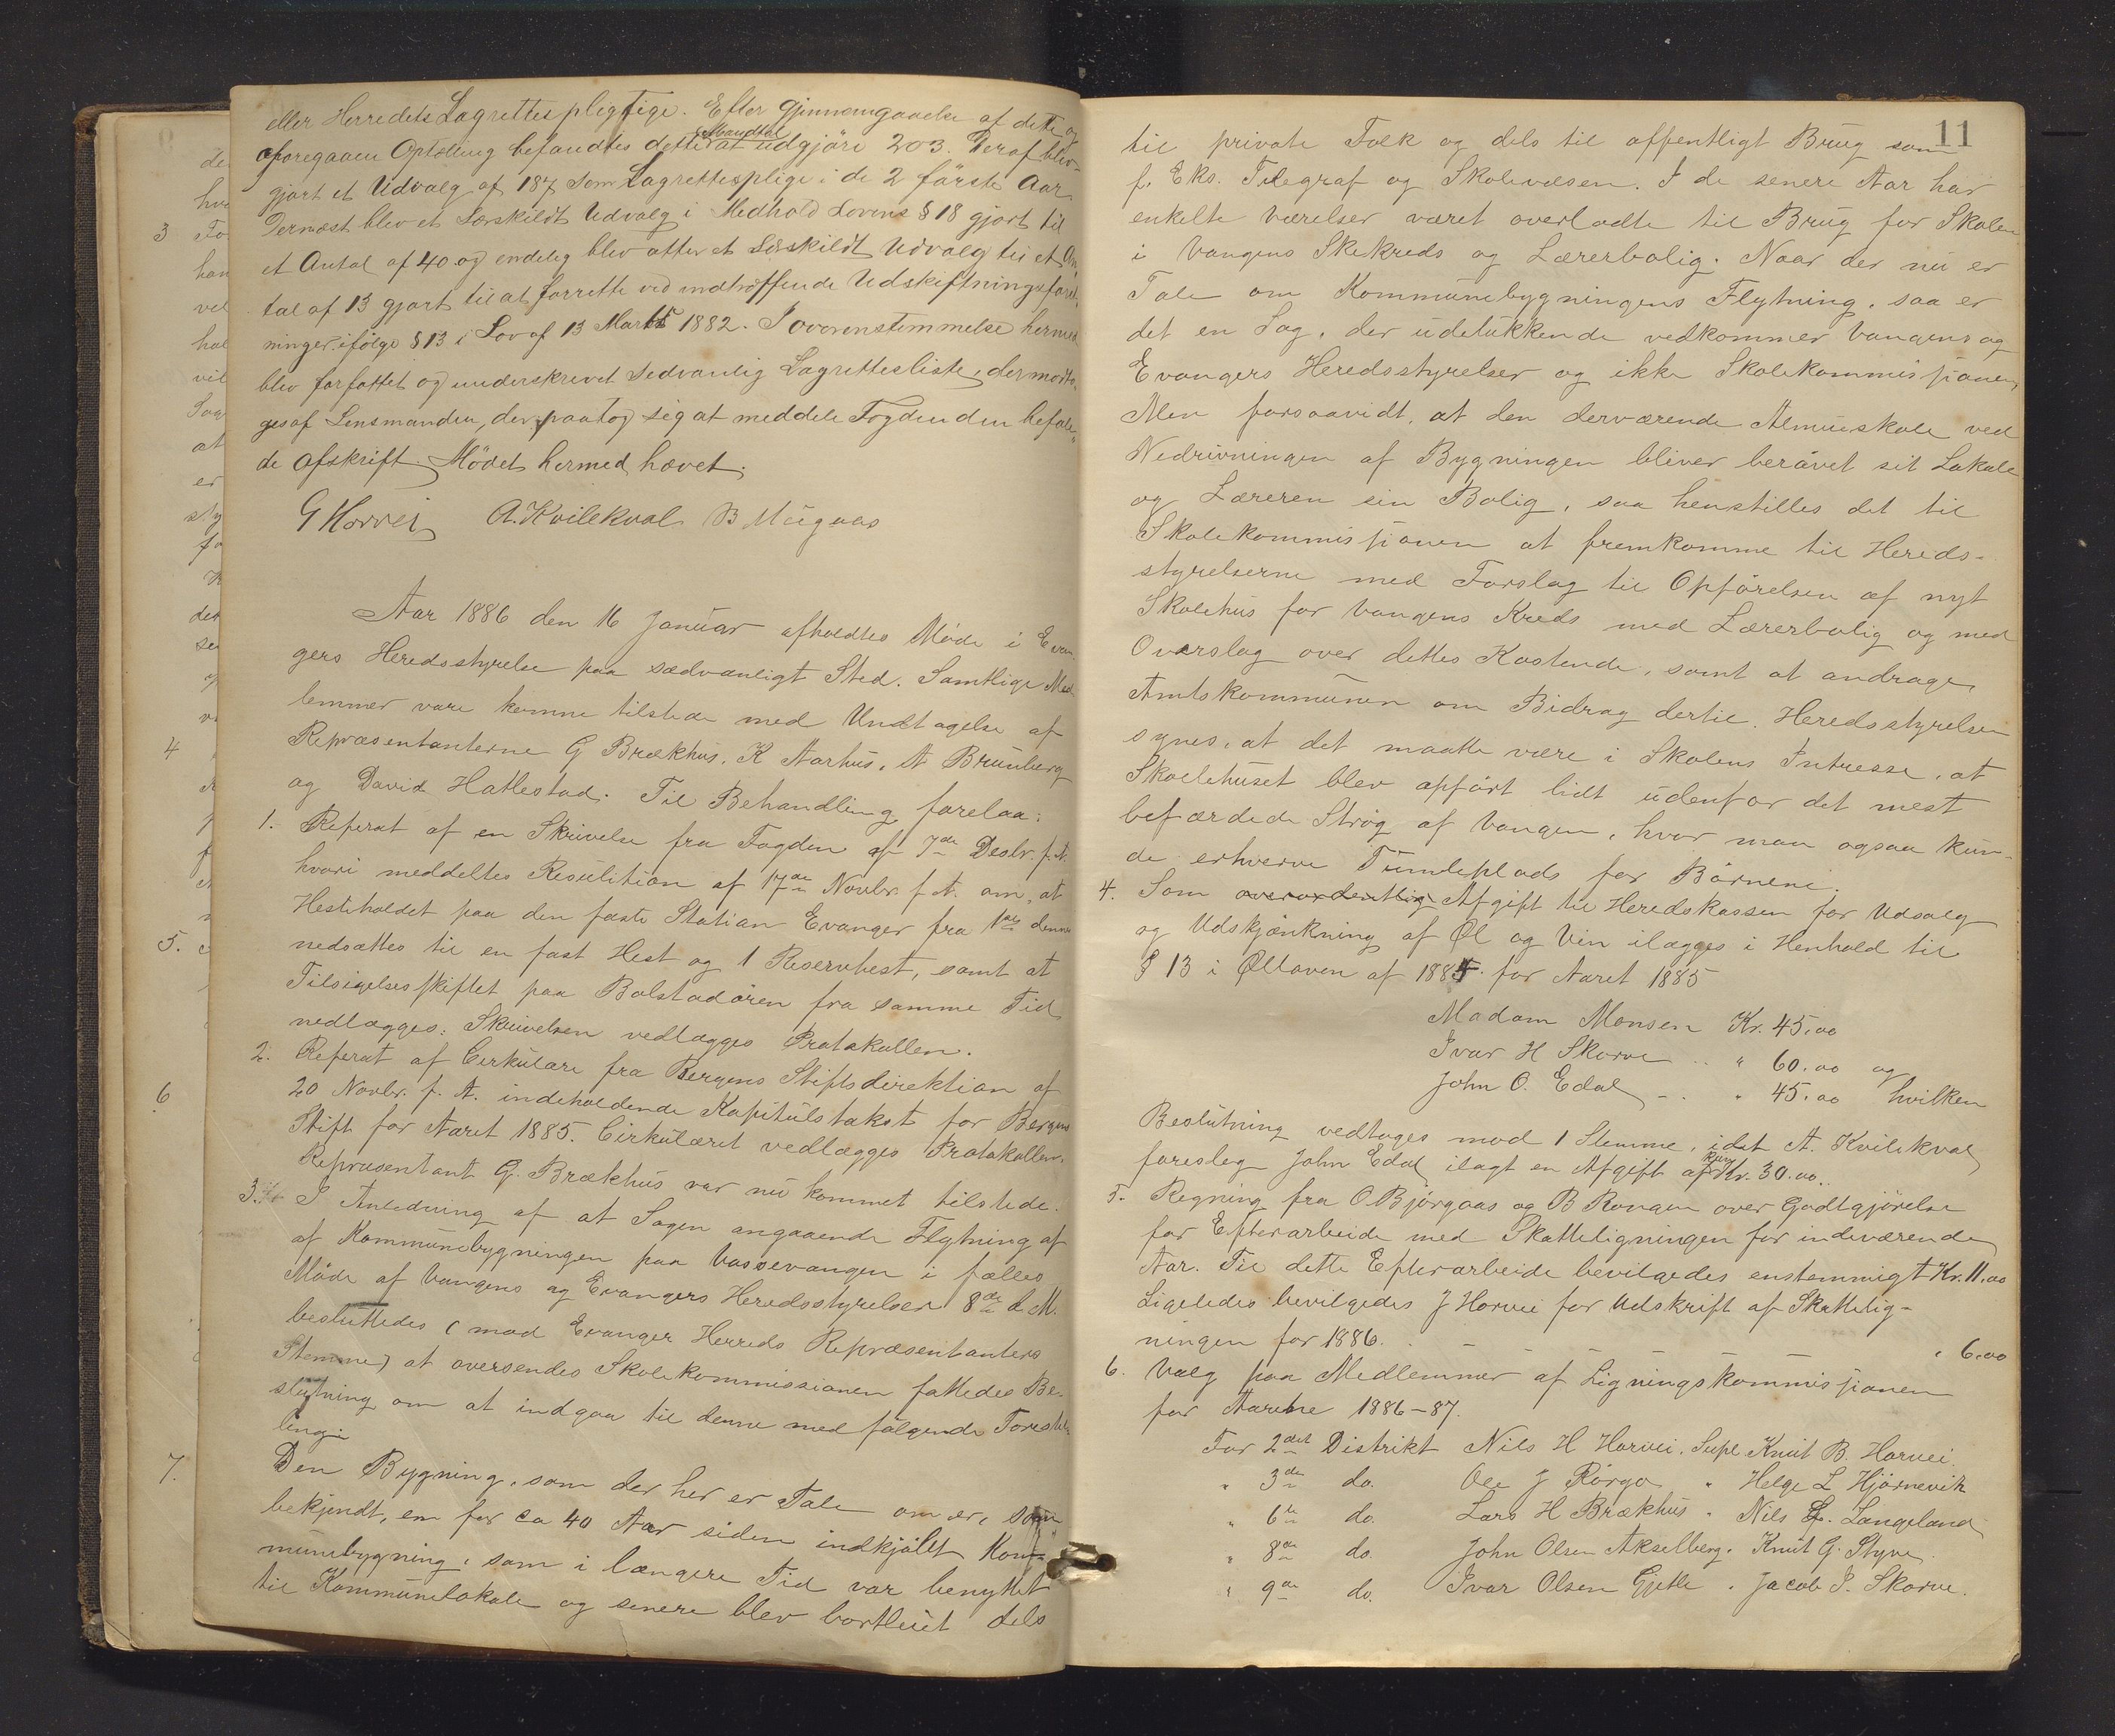 eller Herredets Lagrettespligtige. Efter Gjennemgaaelse af dette og
aforegaaen Optælling befandtes dette Mandtal at udgjøre 203. Deraf blev
gjort et Udvalg af 187 som Lagrettesplige i de 2 første Aar.
Dernæst blev et særskildt Udvalg i Medhold Lovens § 18 gjort til
et Antal af 40 og endelig blev atter et særskildt Udvalg til et An-
tal af 13 gjort til at forrette ved indtræffende Udskiftningsforret-
ninger ifølge § 13 i Lov af 13 Marts 1882. I overenstemmelse hermed
blev forfattet og underskrevet sedvanlig Lagrettesliste, der modto-
ges af Lensmanden, der paatog sig at meddele Fogden den befale-
de afskrift. Mødet hermed hævet.
G Horvei A. Kvilekval B Mugaas
Aar 1886 den 16 Januar afholdtes Møde i Evan-
gers Heredsstyrelse paa sædvanligt Sted. Samtlige Med-
lemmer vare komne tilstede med Undtagelse af
Repræsentanterne G Brækhus, K Aarhus, A Brunberg
og David Hatlestad. Til Behandling forelaa:
1. Referat af en Skrivelse fra Fogden af 7de Desbr. f. A.
hvori meddeltes Resulition af 17de Novbr f. A. om, at
Hesteholdet paa den faste Station Evanger fra 1ste denne
nedsættes til en fast Hest og 1 Reservhest, samt at
Tilsigelsesskiftet paa Bolstadøren fra samme Tid
nedlægges: Skrivelsen vedlægges Protokollen.
2. Referat af Cirkulære fra Bergens Stiftsdirektion af
20 Novbr. f. A. indeholdende Kapitulstakst for Bergens
Stift for Aaret 1885. Cirkulæret vedlægges Protokollen.
Repræsentant G. Brækhus var nu kommet tilstede.
3. I Anledning af at Sagen angaaende Flytning af
af Kommunebygningen paa Vossevangen i fælles
Møde af Vangens og Evangers Heredsstyrelser 8de d. M.
besluttedes (mod Evanger Herreds Repræsentanters
Stemme) at oversendes Skolekommissionen fattedes Be-
slutning om at indgaa til denne med følgende Forestil-
ling:
Den Bygning, som der her er Tale om er, som
bekjendt, en for ca 40 Aar siden indkjøbt Kom-
munebygning, som i længere Tid var benyttet
til Kommunelokale og senere blev bortleiet dels
11
til private Folk og dels til offentligt Brug som
f. Eks. Telegraf og Skolevæsen. I de senere Aar har
enkelte Værelser været overladte til Brug for Skolen
i Vangens Skekreds og Lærerbolig. Naar der nu er
Tale om Kommunebygningens Flytning, saa er
det en Sag, der udelukkende vedkommer Vangens og
Evangers Heredsstyrelser og ikke Skolekommissjonen,
Men forsaavidt, at den derværende Almueskole ved
Nedrivningen af Bygningen bliver berøvet sit Lokale
og Læreren sin Bolig, saa henstilles det til
Skolekommissjonen at fremkomme til Hereds-
styrelserne med Forslag til Opførelsen af nyt
Skolehus for Vangens Kreds med Lærerbolig og med
Overslag over dettes Kostende, samt at andrage
Amtskommunen om Bidrag dertil. Heredsstyrelsen
synes, at det maatte være i Skolens Intresse, at
Skolehuset blev opført lidt udenfor det mest
befærdede Strøg af Vangen, hvor man ogsaa kun-
de erhverve Tumleplads for Børnene.
4. Som overordentlig Afgift til Heredskassen for Udsalg
og Udskjænkning af Øl og Vin ilægges i Henhold til
§ 13 iØlloven af 1884 for Aaret 1885
Madam Monsen Kr. 45.00
Ivar H Skorve .. " 60.00 og
John O. Edal - . " 45.00 hvilken
Beslutning vedtages mod 1 Stemme, idet A. Kvilekval
foreslog John Edal ilagt en Afgift af kun Kr. 30.00.
5. Regning fra O Bjørgaas og B Rongen over Godtgjørelse
for Efterarbeide med Skatteligningen for indeværende
Aar. Til dette Efterarbeide bevilgedes enstemmigt Kr. 11.00
Ligeledes bevilgedes J Horvei for Udskrift af Skattelig-
ningen for 1886. - - - " 6.00
6. Valg paa Medlemmer af Ligningskommissjonen
for Aarene 1886-87.
For 2det Distrikt Nils H Horvei. Supl Knut B. Horvei.
" 3die do. Ole J Rørgo " Helge L Hjørnevik
" 6te do. Lars H Brækhus " Nils L. Langeland
" 8de do. John Olsen Akselberg. Knut G. Styve.
" 9de do. Ivar Olsen Gjetle. Jacob I. Skorve.
3
4
5.
6
7.